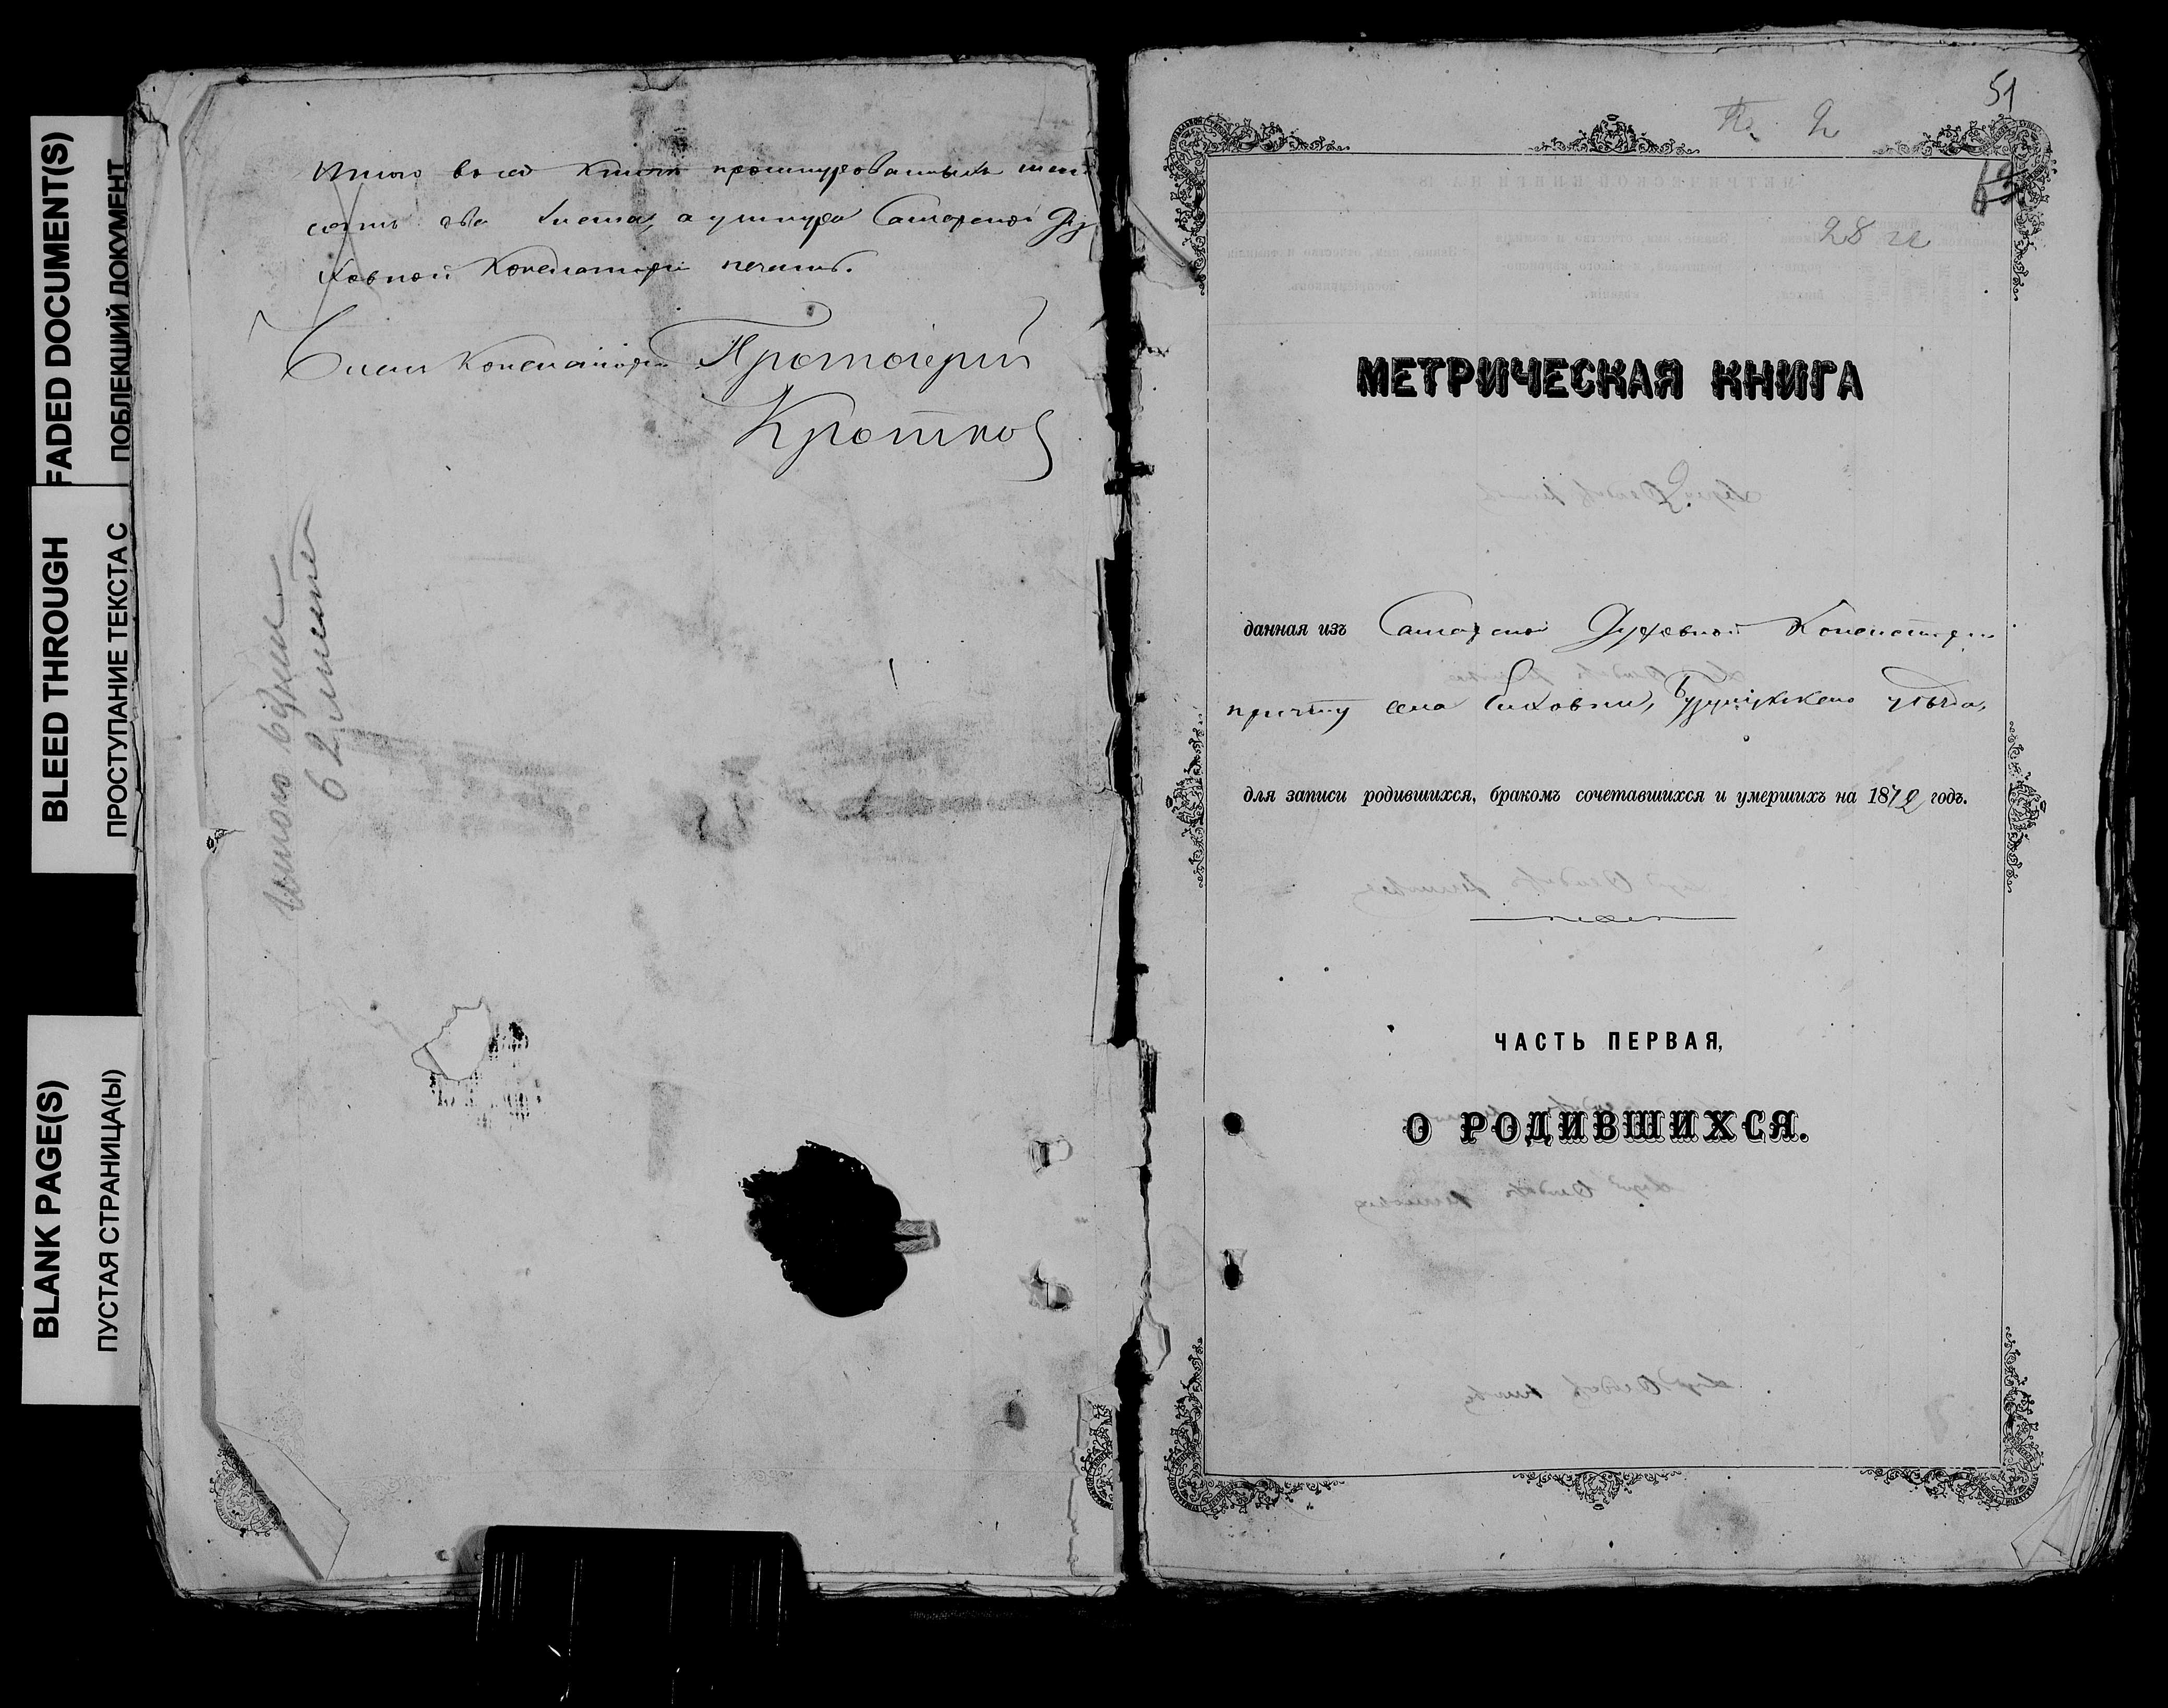 FADED DOCUMENT(S)
ПОБЛЕКЩИЙ ДОКУМЕНТ
BLEED THROUGH
ПРОСТУПАНИЕ ТЕКСТА С
BLANK PAGE(S)
ПУСТАЯ СТРАНИЦА(Ы)
Итого въ сей книгѣ прошнурованныхъ шесть
сятъ два листа, а у шнура Самарской Ду
ховной Консисторіи печать.
Членъ Консисторіи Протоіерей
Кротков
Итого
62 листа
51
2
28
МЕТРИЧЕСКАЯ КНИГА
данная изъ Самарской Духовной Консисторіи
причту села Бузулукскаго уѣзда,
для записи родившихся, бракомъ сочетавшихся и умершихъ на 1872 годъ.
ЧАСТЬ ПЕРВАЯ,
О РОДИВШИХСЯ.